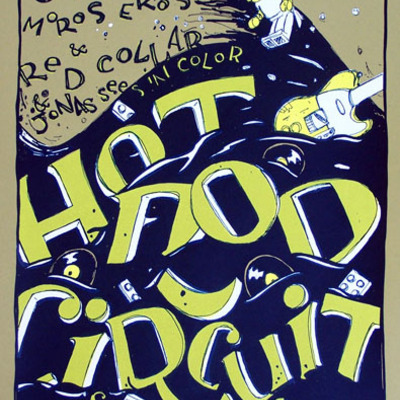 MOROS EROS
& 
RED COLLAR
& JONAS SEES IN COLOR
HOT
ROD
CIRCUIT